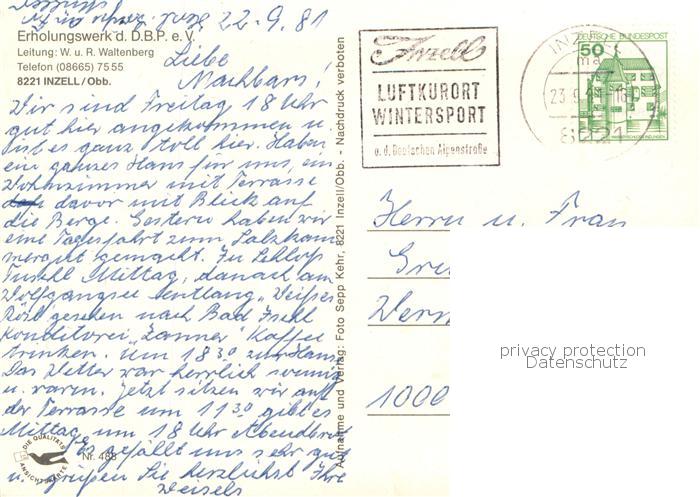 22.9.81
Erholungswerk d. D.B.P. e.V.
Leitung: W. u. R. Waltenberg
Telefon (08665) 75 55
8221 INZELL/Obb.
Liebe
Nachbarn!
Wir sind Freitag 18 Uhr
gut hier angekommen u.
ist es ganz toll hier. Haben
ein ganzes Haus für uns, ein
Wohnzimmer mit Terrasse
davor mit Blick auf
die Berge. Gestern haben wir
eine Tagesfahrt zum Salzkam
mergut gemacht. In Schloß
Fuschl Mittag, danach am
Wolfgangsee entlang, Weißes
Rößl gesehen nach Bad Ischl
Konditorei „Zauner" Kaffee
trinken. Um 18 30 zu Haus
Das Wetter war herrlich sonnig
u. warm. Jetzt sitzen wir auf
der Terrasse um 11 30 gibt es
Mittag um 18 Uhr Abendbrot
Es gefällt uns sehr gut
u. grüßen Sie herzlichst Ihre
Weisels
DIE QUALITÄTS
ANSICHTSKARTE
Nr. 488
Aufnahme und Verlag: Foto Sepp Kehr, 8221 Inzell/Obb. - Nachdruck verboten
Inzell
LUFTKURORT
WINTERSPORT
a. d. Deutschen Alpenstraße
INZELL
ma
8221
DEUTSCHE BUNDESPOST
50
Herrn u. Frau
1000
privacy protection
Datenschutz